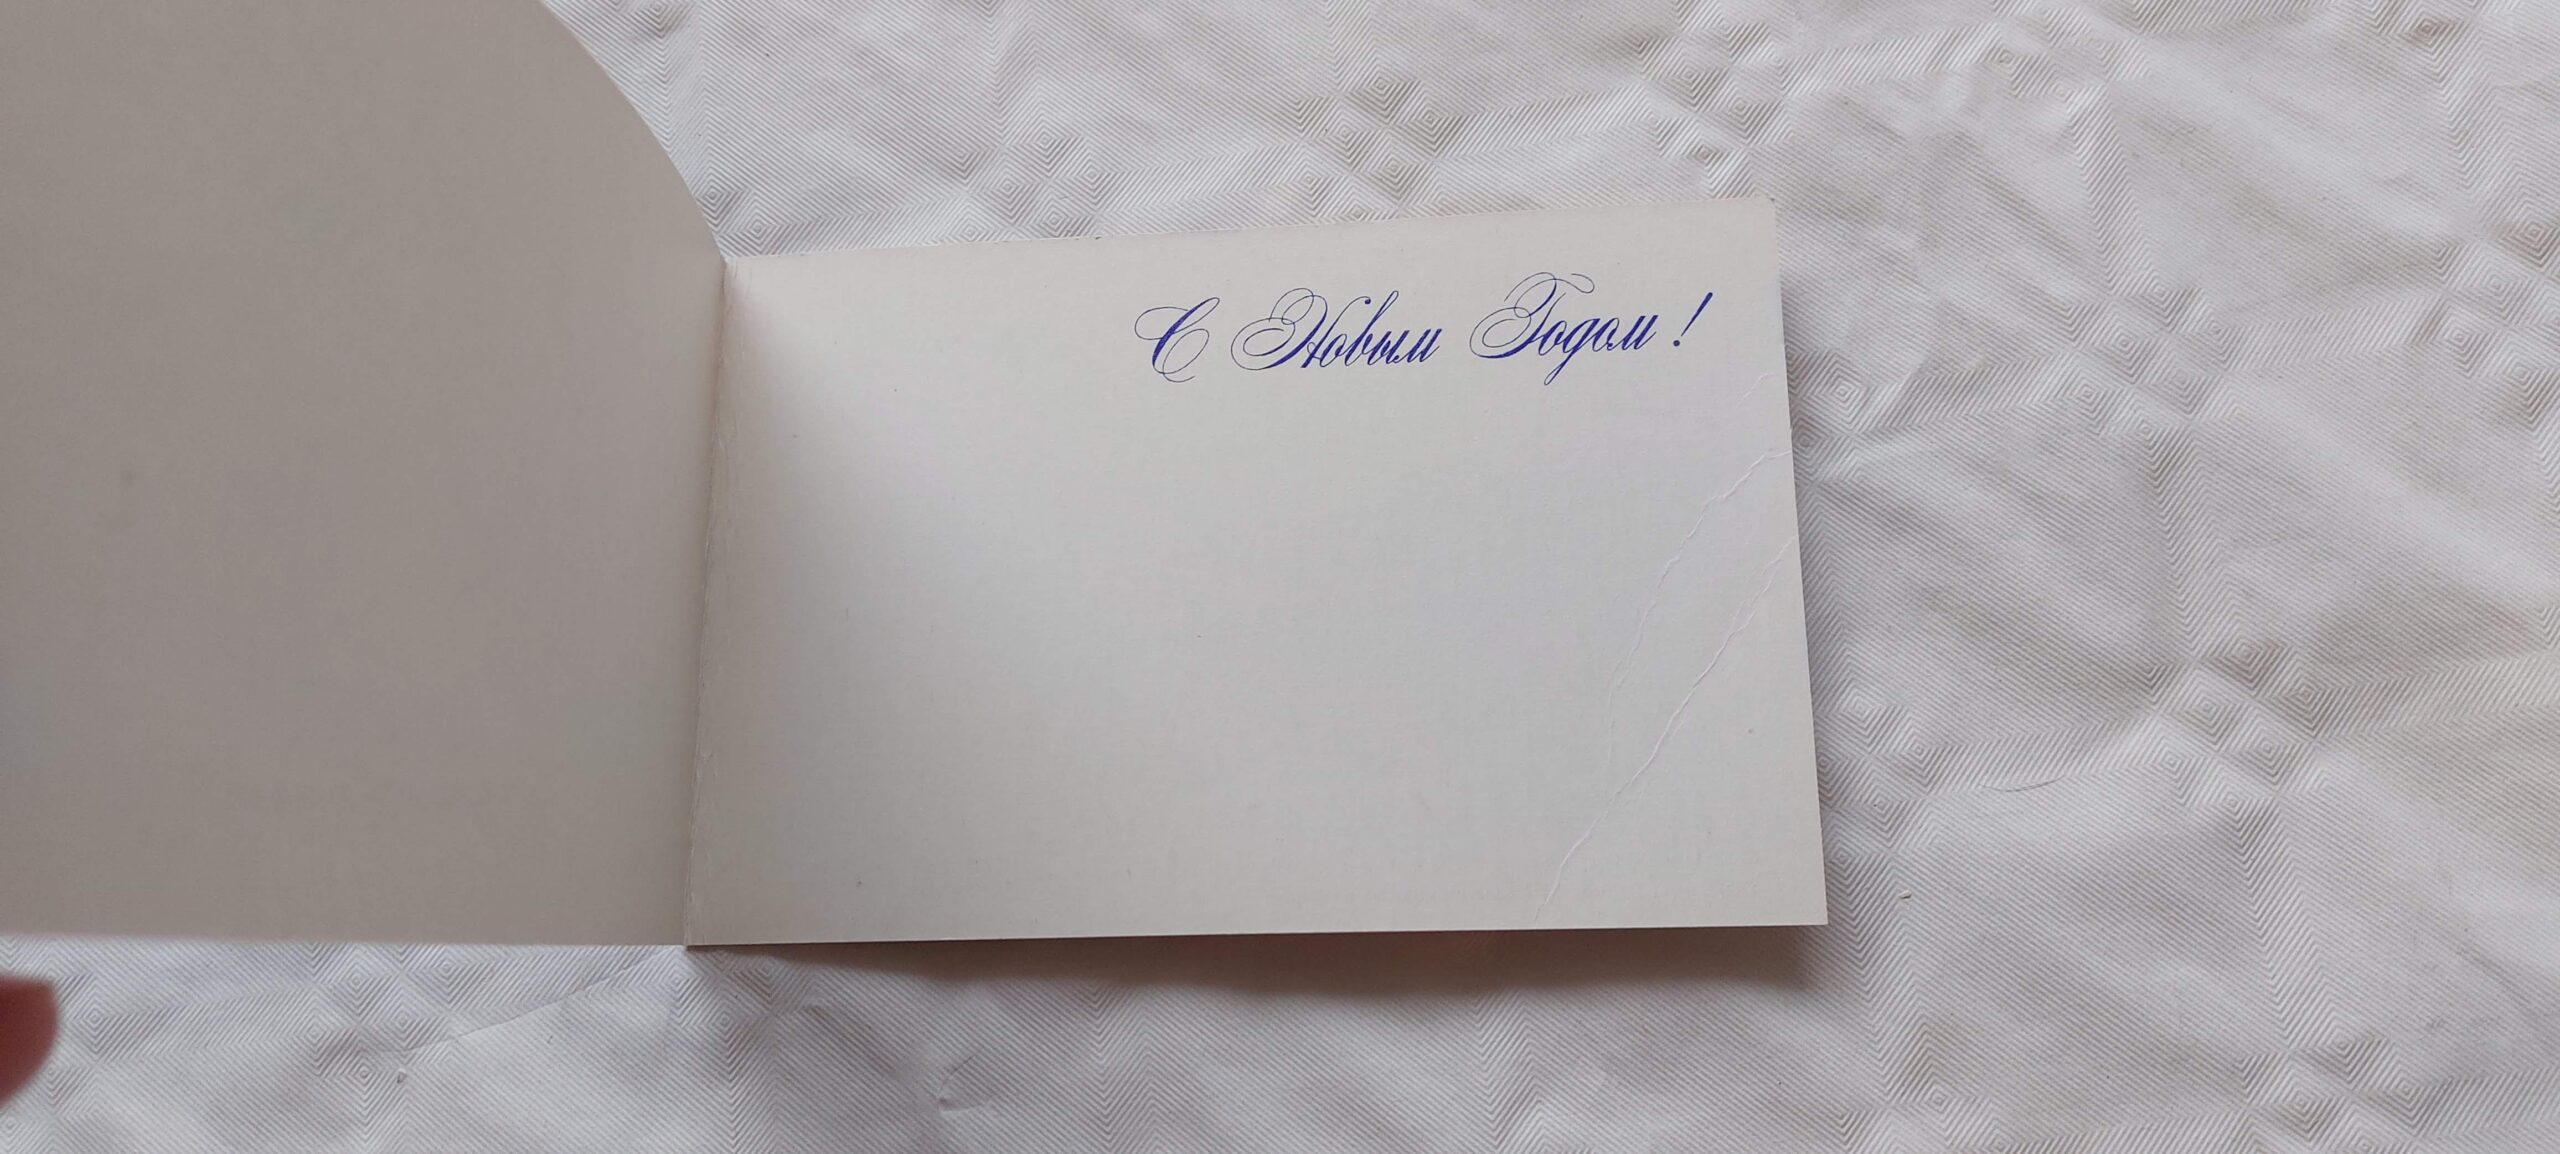 С Новым Годом!